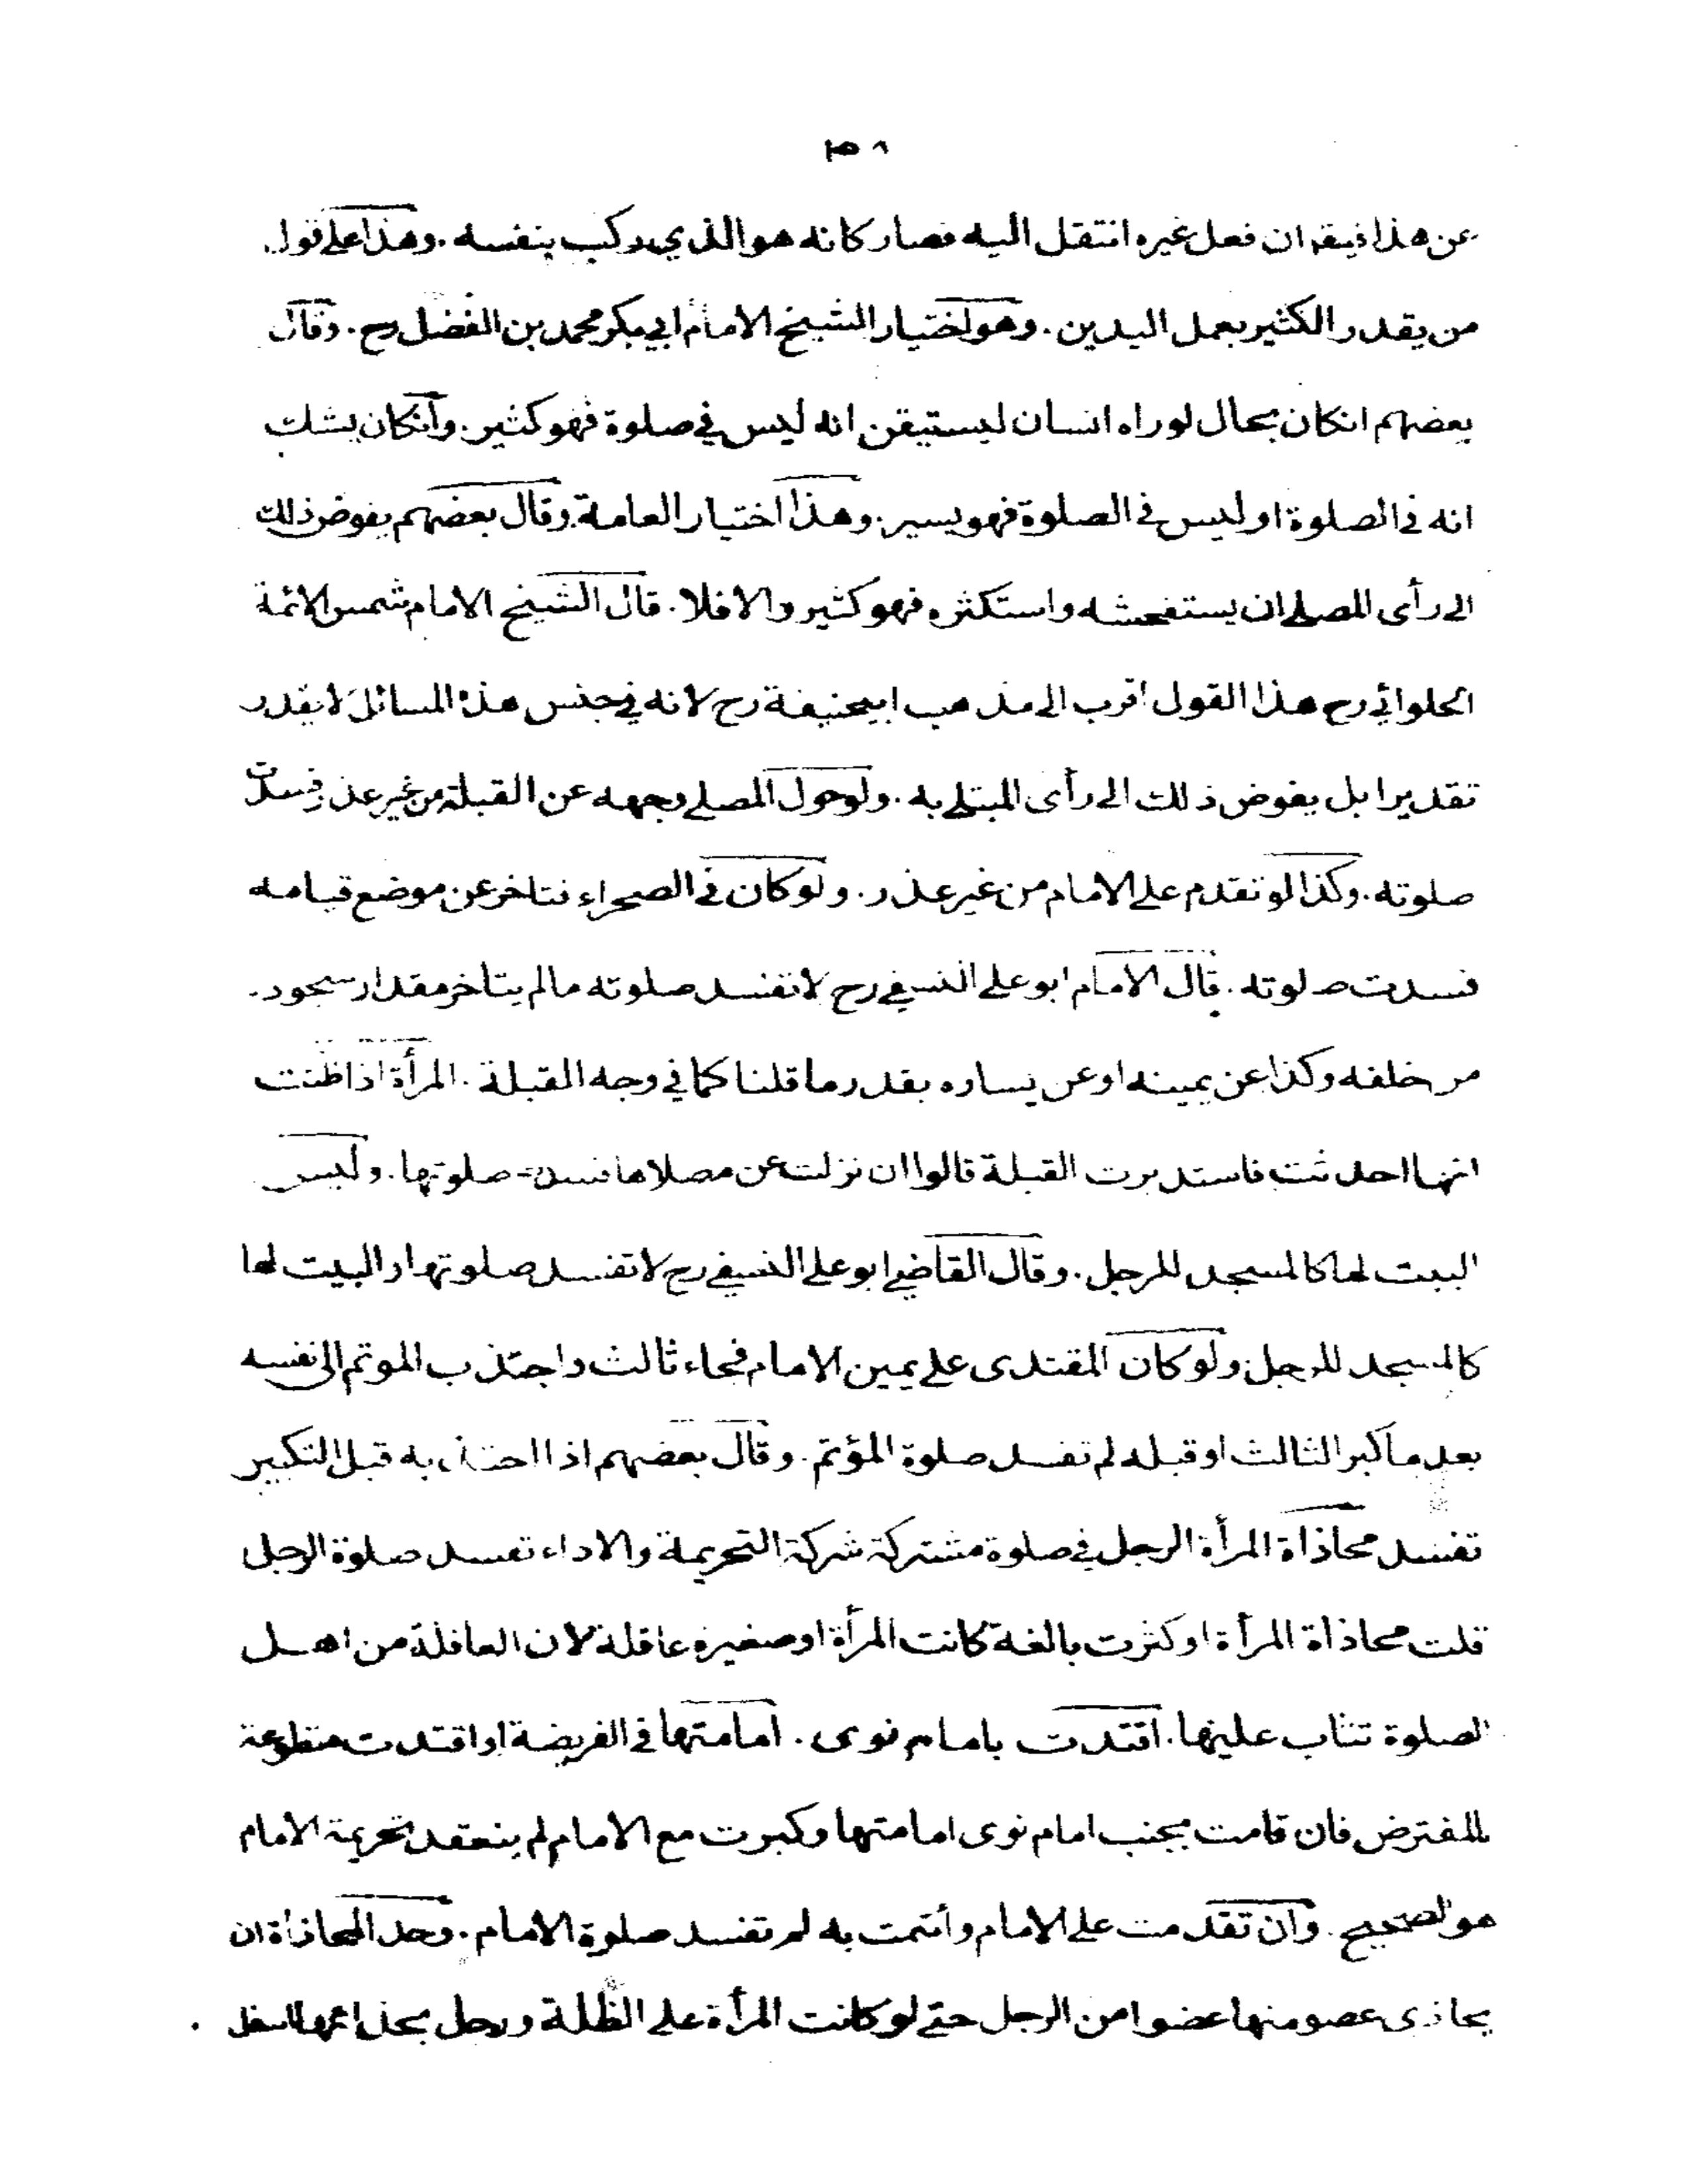 عن هذا فيقم ان فعل غيره انتقل اليه فصار كانه هو الذي يركب بنفسه . وهذا على قول
من يقدر الكثير بعمل اليدين . وهو اختيار الشيخ الامام ابي بكر محمد بن الفضل رح . وقال
بعضهم انكان بحال لو راه انسان ليستيقن انه ليس في صلوة فهو كثير . وانكان يشك
انه في الصلوة او ليس في الصلوة فهو يسير . وهذا اختيار العامة . وقال بعضهم يفوض ذلك
الى رأى المصلى ان يستفحشه واستكثره فهو كثير والا فلا . قال الشيخ الامام شمس الائمة
الحلوائي رح هذا القول اقرب الى مذهب ابيحنيفة رح لانه في جنس هذه المسائل لا يقدر
تقديرا بل يفوض ذلك الى رأى المبتلى به . ولو حول المصلى وجهه عن القبلة من غير عذر فسدت
صلوته . وكذا لو تقدم على الامام من غير عذر . ولو كان في الصحراء فتاخر عن موضع قيامه
فسدت صلوته . قال الامام ابو على النسفي رح لا تفسد صلوته مالم يتاخر مقدار سجود
من خلفه وكذا عن يمينه او عن يساره بقدر ما قلنا كما في وجه القبلة . المرأة اذا ظنت
انها احدثت فاستدبرت القبلة قالوا ان نزلت عن مصلاها فسدت صلوتها . وليس
البيت لها كالمسجد للرجل . وقال القاضي ابو على النسفي رح لا تفسد صلوتها والبيت لها
كالمسجد للرجل . ولو كان المقتدى على يمين الامام فجاء ثالث واجتذب الموتم الى نفسه
بعد ما كبر الثالث او قبله لم تفسد صلوة المؤتم . وقال بعضهم اذا اجتذبه قبل التكبير
تفسد محاذاة المرأة الرجل في صلوة مشتركة شركة التحريمة والاداء تفسد صلوة الرجل
قلت محاذاة المرأة او كثرت بالغة كانت المرأة او صغيرة عاقلة لان العاقلة من اهل
الصلوة تثاب عليها . اقتدت بامام نوى . امامتها في الفريضة او اقتدت متطوعة
بالمفترض فان قامت بجنب امام نوى امامتها وكبرت مع الامام لم ينعقد تحريمة الامام
هو الصحيح . وان تقدمت على الامام وأتمت به لم تفسد صلوة الامام . وحد المحاذاة ان
يحاذى عضو منها عضوا من الرجل حتى لو كانت المرأة على الظلة ورجل بحذائها اسفل